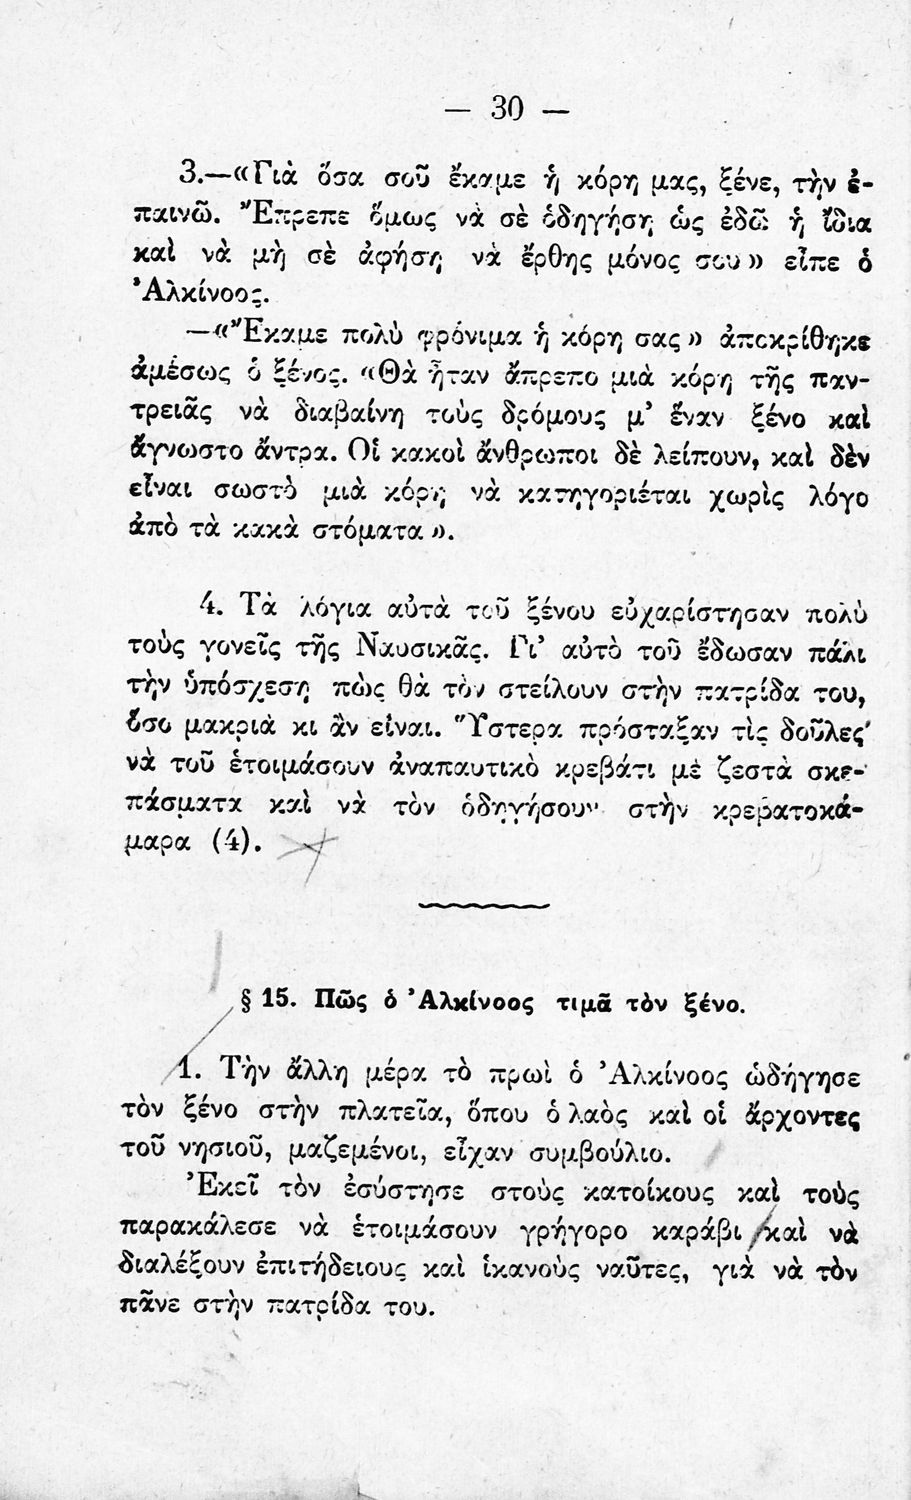 — 30 —
3.—«Γιὰ ὅσα σοῦ ἔκαμε ἡ κόρη μας, ξένε, τὴν ἐ-
παινῶ. Ἔπρεπε ὅμως νὰ σὲ ὁδηγήση ὡς ἐδῶ ἡ ἴδια
καὶ νὰ μὴ σὲ ἀφήση νὰ ἔρθης μόνος σου» εἶπε ὁ
Ἀλκίνοος.
—«Ἔκαμε πολὺ φρόνιμα ἡ κόρη σας» ἀποκρίθηκε
ἀμέσως ὁ ξένος. «Θὰ ἦταν ἄπρεπο μιὰ κόρη τῆς παν-
τρειᾶς νὰ διαβαίνη τοὺς δρόμους μ’ ἕναν ξένο καὶ
ἄγνωστο ἄντρα. Οἱ κακοὶ ἄνθρωποι δὲ λείπουν, καὶ δὲν
εἶναι σωστὸ μιὰ κόρη νὰ κατηγοριέται χωρὶς λόγο
ἀπὸ τὰ κακὰ στόματα».
4. Τὰ λόγια αὐτὰ τοῦ ξένου εὐχαρίστησαν πολὺ
τοὺς γονεῖς τῆς Ναυσικᾶς. Γι’ αὐτὸ τοῦ ἔδωσαν πάλι
τὴν ὑπόσχεση πὼς θὰ τὸν στείλουν στὴν πατρίδα του,
ὅσο μακριὰ κι ἂν εἶναι. Ὕστερα πρόσταξαν τὶς δοῦλες
νὰ τοῦ ἑτοιμάσουν ἀναπαυτικὸ κρεβάτι μὲ ζεστὰ σκε-
πάσματα καὶ νὰ τὸν ὁδηγήσουν στὴν κρεβατοκά-
μαρα (4).
§ 15. Πῶς ὁ Ἀλκίνοος τιμᾶ τὸν ξένο.
1. Τὴν ἄλλη μέρα τὸ πρωὶ ὁ Ἀλκίνοος ὡδήγησε
τὸν ξένο στὴν πλατεῖα, ὅπου ὁ λαὸς καὶ οἱ ἄρχοντες
τοῦ νησιοῦ, μαζεμένοι, εἶχαν συμβούλιο.
Ἐκεῖ τὸν ἐσύστησε στοὺς κατοίκους καὶ τοὺς
παρακάλεσε νὰ ἑτοιμάσουν γρήγορο καράβι καὶ νὰ
διαλέξουν ἐπιτήδειους καὶ ἱκανοὺς ναῦτες, γιὰ νὰ τὸν
πᾶνε στὴν πατρίδα του.